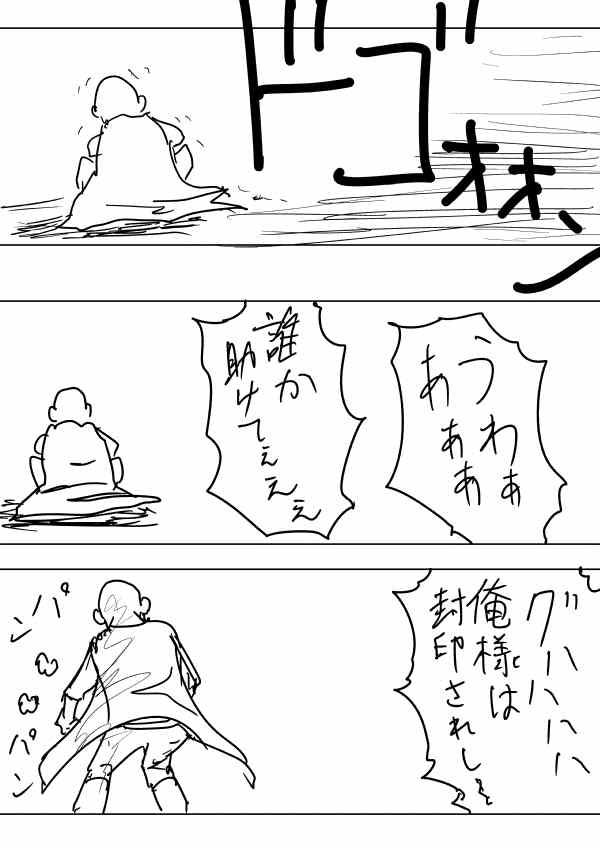 ドゴオオン
うわぁ
あぁぁ
誰か
助けてぇぇぇ
グハハハハ
俺様は
封印されし
パン
パン